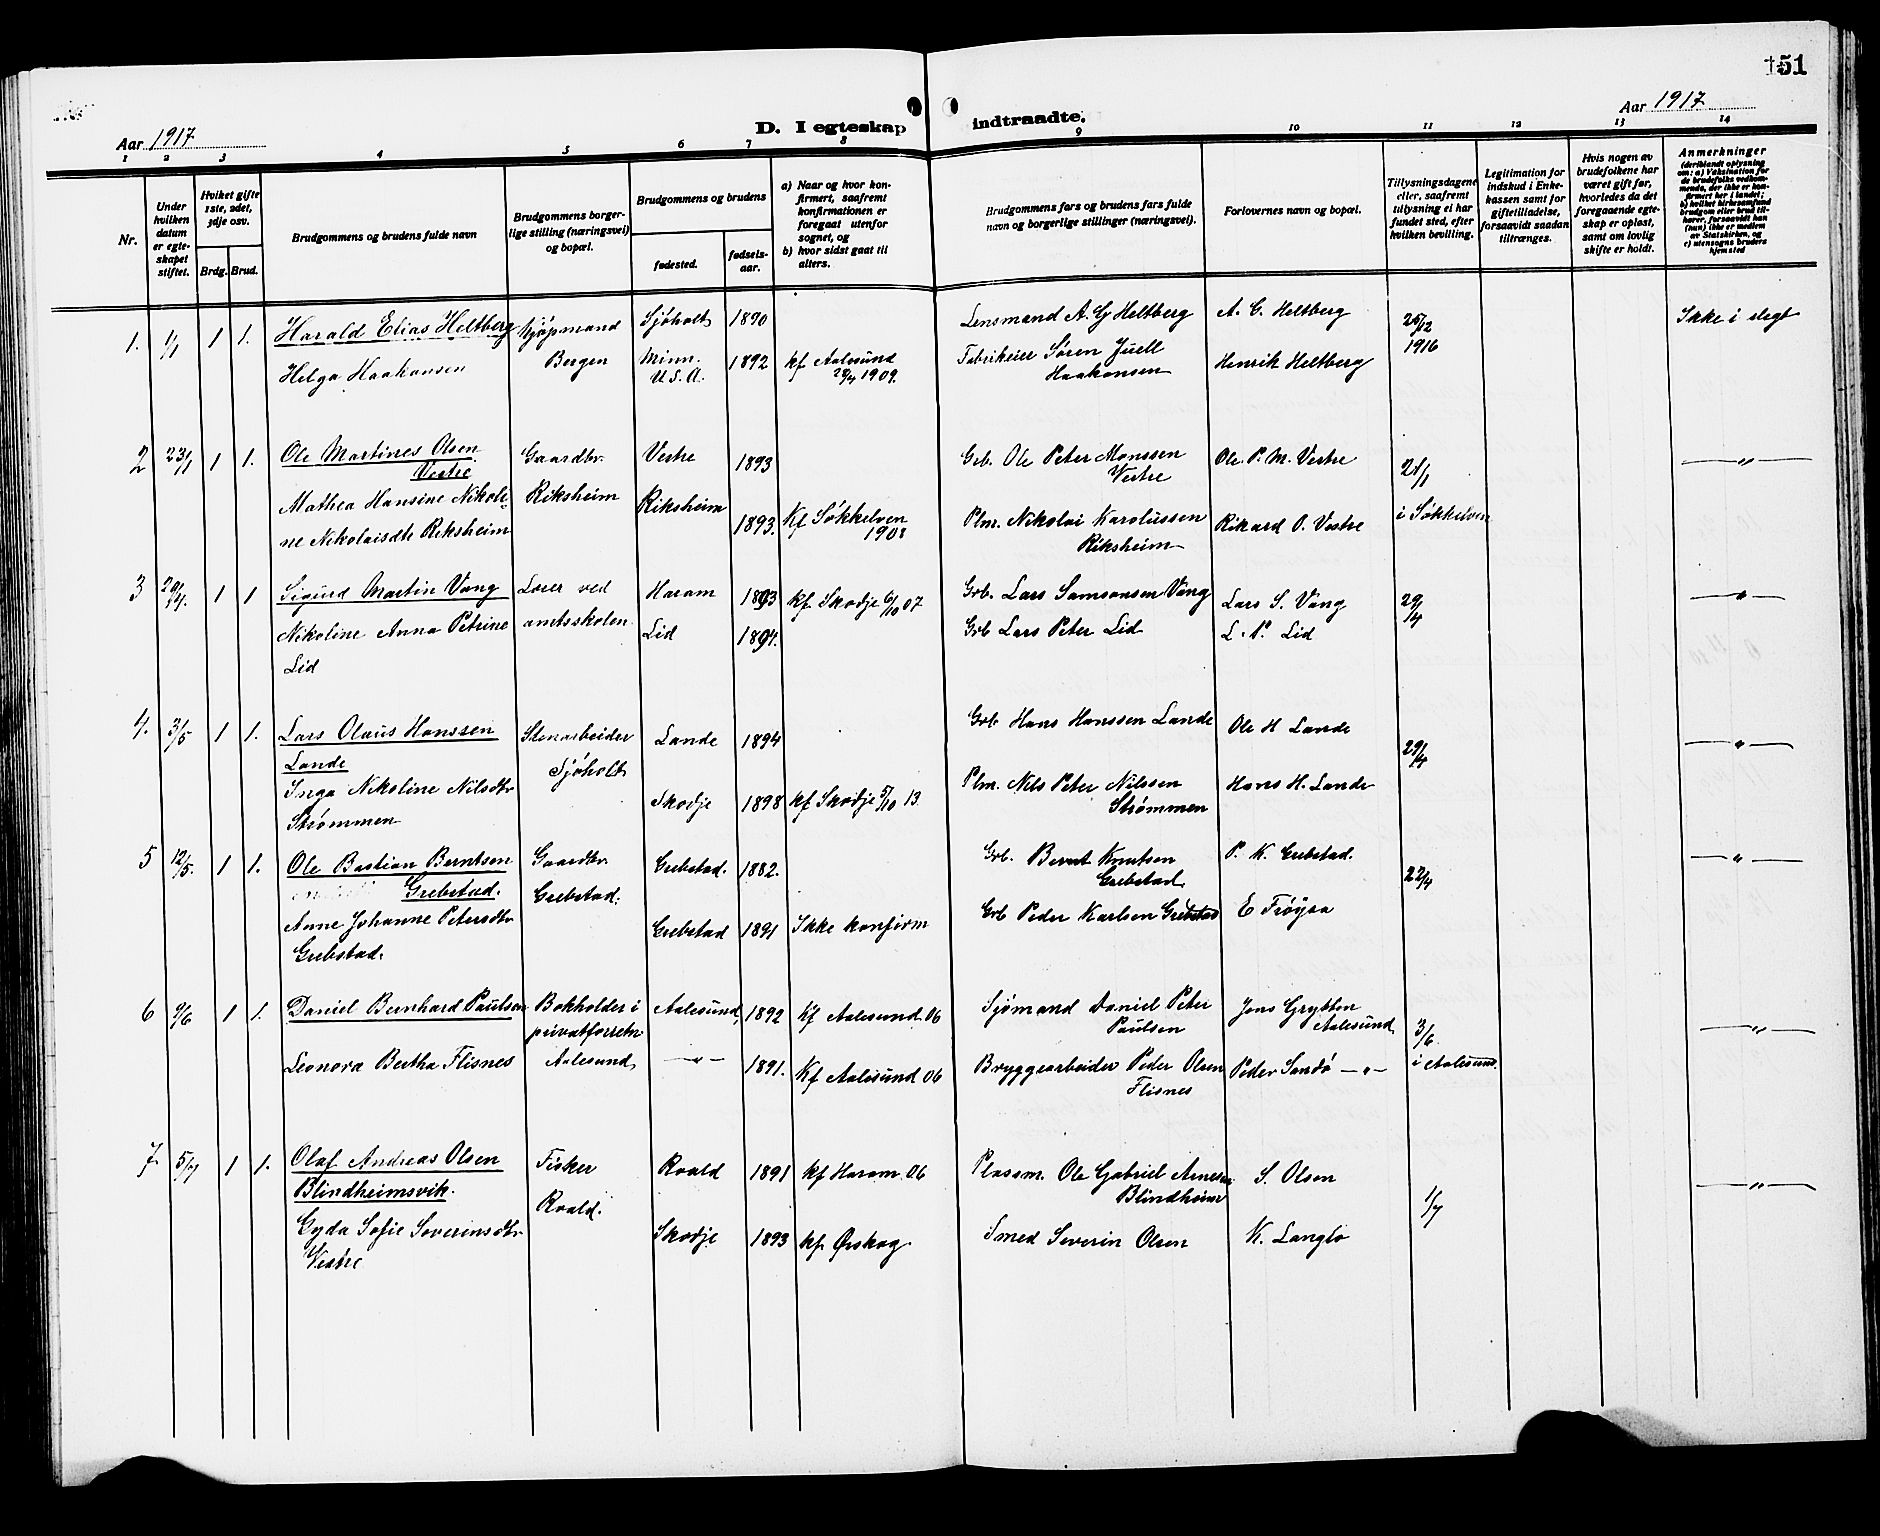 151
Aar 1917
D. I egteskap indtraadte.
Aar 1917
1 2 3 4 5 6 7 8 9 10 11 12 13 14
Nr.
Under hvilken datum er egteskapet stiftet.
Hvilket gifte 1ste, 2det, 3dje osv.
Brdg. Brud.
Brudgommens og brudens fulde navn
Brudgommens borgerlige stilling (næringsvei) og bopæl.
Brudgommens og brudens
fødested.
fødselsaar.
a) Naar og hvor konfirmert, saafremt konfirmationen er foregaat utenfor sognet, og
b) hvor sidst gaat til alters.
Brudgommens fars og brudens fars fulde navn og borgerlige stillinger (næringsvei).
Forlovernes navn og bopæl.
Tillysningsdagene eller, saafremt tillysning ei har fundet sted, efter hvilken bevilling.
Legitimation for indskud i Enkekassen samt for giftetilladelse, forsaavidt saadan tiltrænges.
Hvis nogen av brudefolkene har været gift før, hvorledes da det foregaaende egteskap er opløst, samt om lovlig skifte er holdt.
Anmerkninger
(deriblandt oplysning om: a) Vaksination for de brudefolks vedkommende, der ikke er konfirmert her i landet; b) hvilket kirkesamfund brudgom eller brud tilhører, forsaavidt han (hun) ikke er medlem av Statskirken, og c) utensogns bruders hjemsted
1. 1/1 1 1. Harald Elias Heltberg Kjøpmand Sjøholt 1890 Lensmand A. G Heltberg A. G. Heltberg 26/12 1916 Ikke i slegt
Helga Haakonsen Bergen Minn. U.S.A. 1892 kf Aalesund 1909. Fabrikeier Søren Juell Haakonsen Henrik Heltberg
2 23/1 1 1. Ole Martines Olsen Vestre Gaardbr. Vestre 1893 Grb. Ole Peter Monssen Vestre Ole P. M. Vestre 21/1 — " —
Mathea Hansine Nikoline Nikolaisdtr Riksheim Riksheim Riksheim 1893. Kf Søkkelven 1908 Plm. Nikolai Karolussen Riksheim Rikard O. Vestre i Søkkelven
3 29/4. 1 1 Sigurd Martin Vang Lærer ved Haram 1893 kf Skodje 6/10 07 Grb. Lars Samsonsen Vang Lars S. Vang 29/4 — " —
Nikoline Anna Petrine Lid amtsskolen Lid 1894. Grb Lars Peter Lid L. P. Lid
4. 3/5 1 1. Lars Olaus Hanssen Lande Stenarbeider Lande 1894 Grb Hans Hanssen Lande Ole H Lande 29/4 — " —
Inga Nikoline Nilsdtr Strømmen Sjøholt Skodje 1898 kf Skodje 5/10 13. Plm. Nils Peter Nilssen Strømmen Hans H. Lande
5 12/5. 1 1. Ole Bastian Berntsen Grebstad. Gaardbr. Grebstad. 1882. Grb. Bernt Knutsen Grebstad P. K. Grebstad. 22/4 — " —
Anne Johanne Petersdtr Grebstad. Grebstad. Grebstad 1891 Ikke konfirm Grb Peder Karlsen Grebstad E Frøysa
6 9/6 1 1. Daniel Bernhard Paulsen Bokholder i Aalesund 1892 Kf Aalesund 06 Sjømand Daniel Peter Paulsen Jens Grytten Aalesund 3/6. — " —
Leonora Bertha Flisnes privatforretn Aalesund — " — 1891. Kf Aalesund 06 Bryggearbeider Peder Olsen Flisnes Peder Sandø — " — i Aalesund
7 5/7 1 1. Olaf Andreas Olsen Blindheimsvik. Fisker Roald 1891 kf Haram 06 Plassm. Ole Gabriel Arnesen Blindheim S. Olsen 1/7 — " —
Gyda Sofie Severinsdtr Vestre Roald. Skodje 1893 kf. Ørskog Smed Severin Olsen K. Langlo